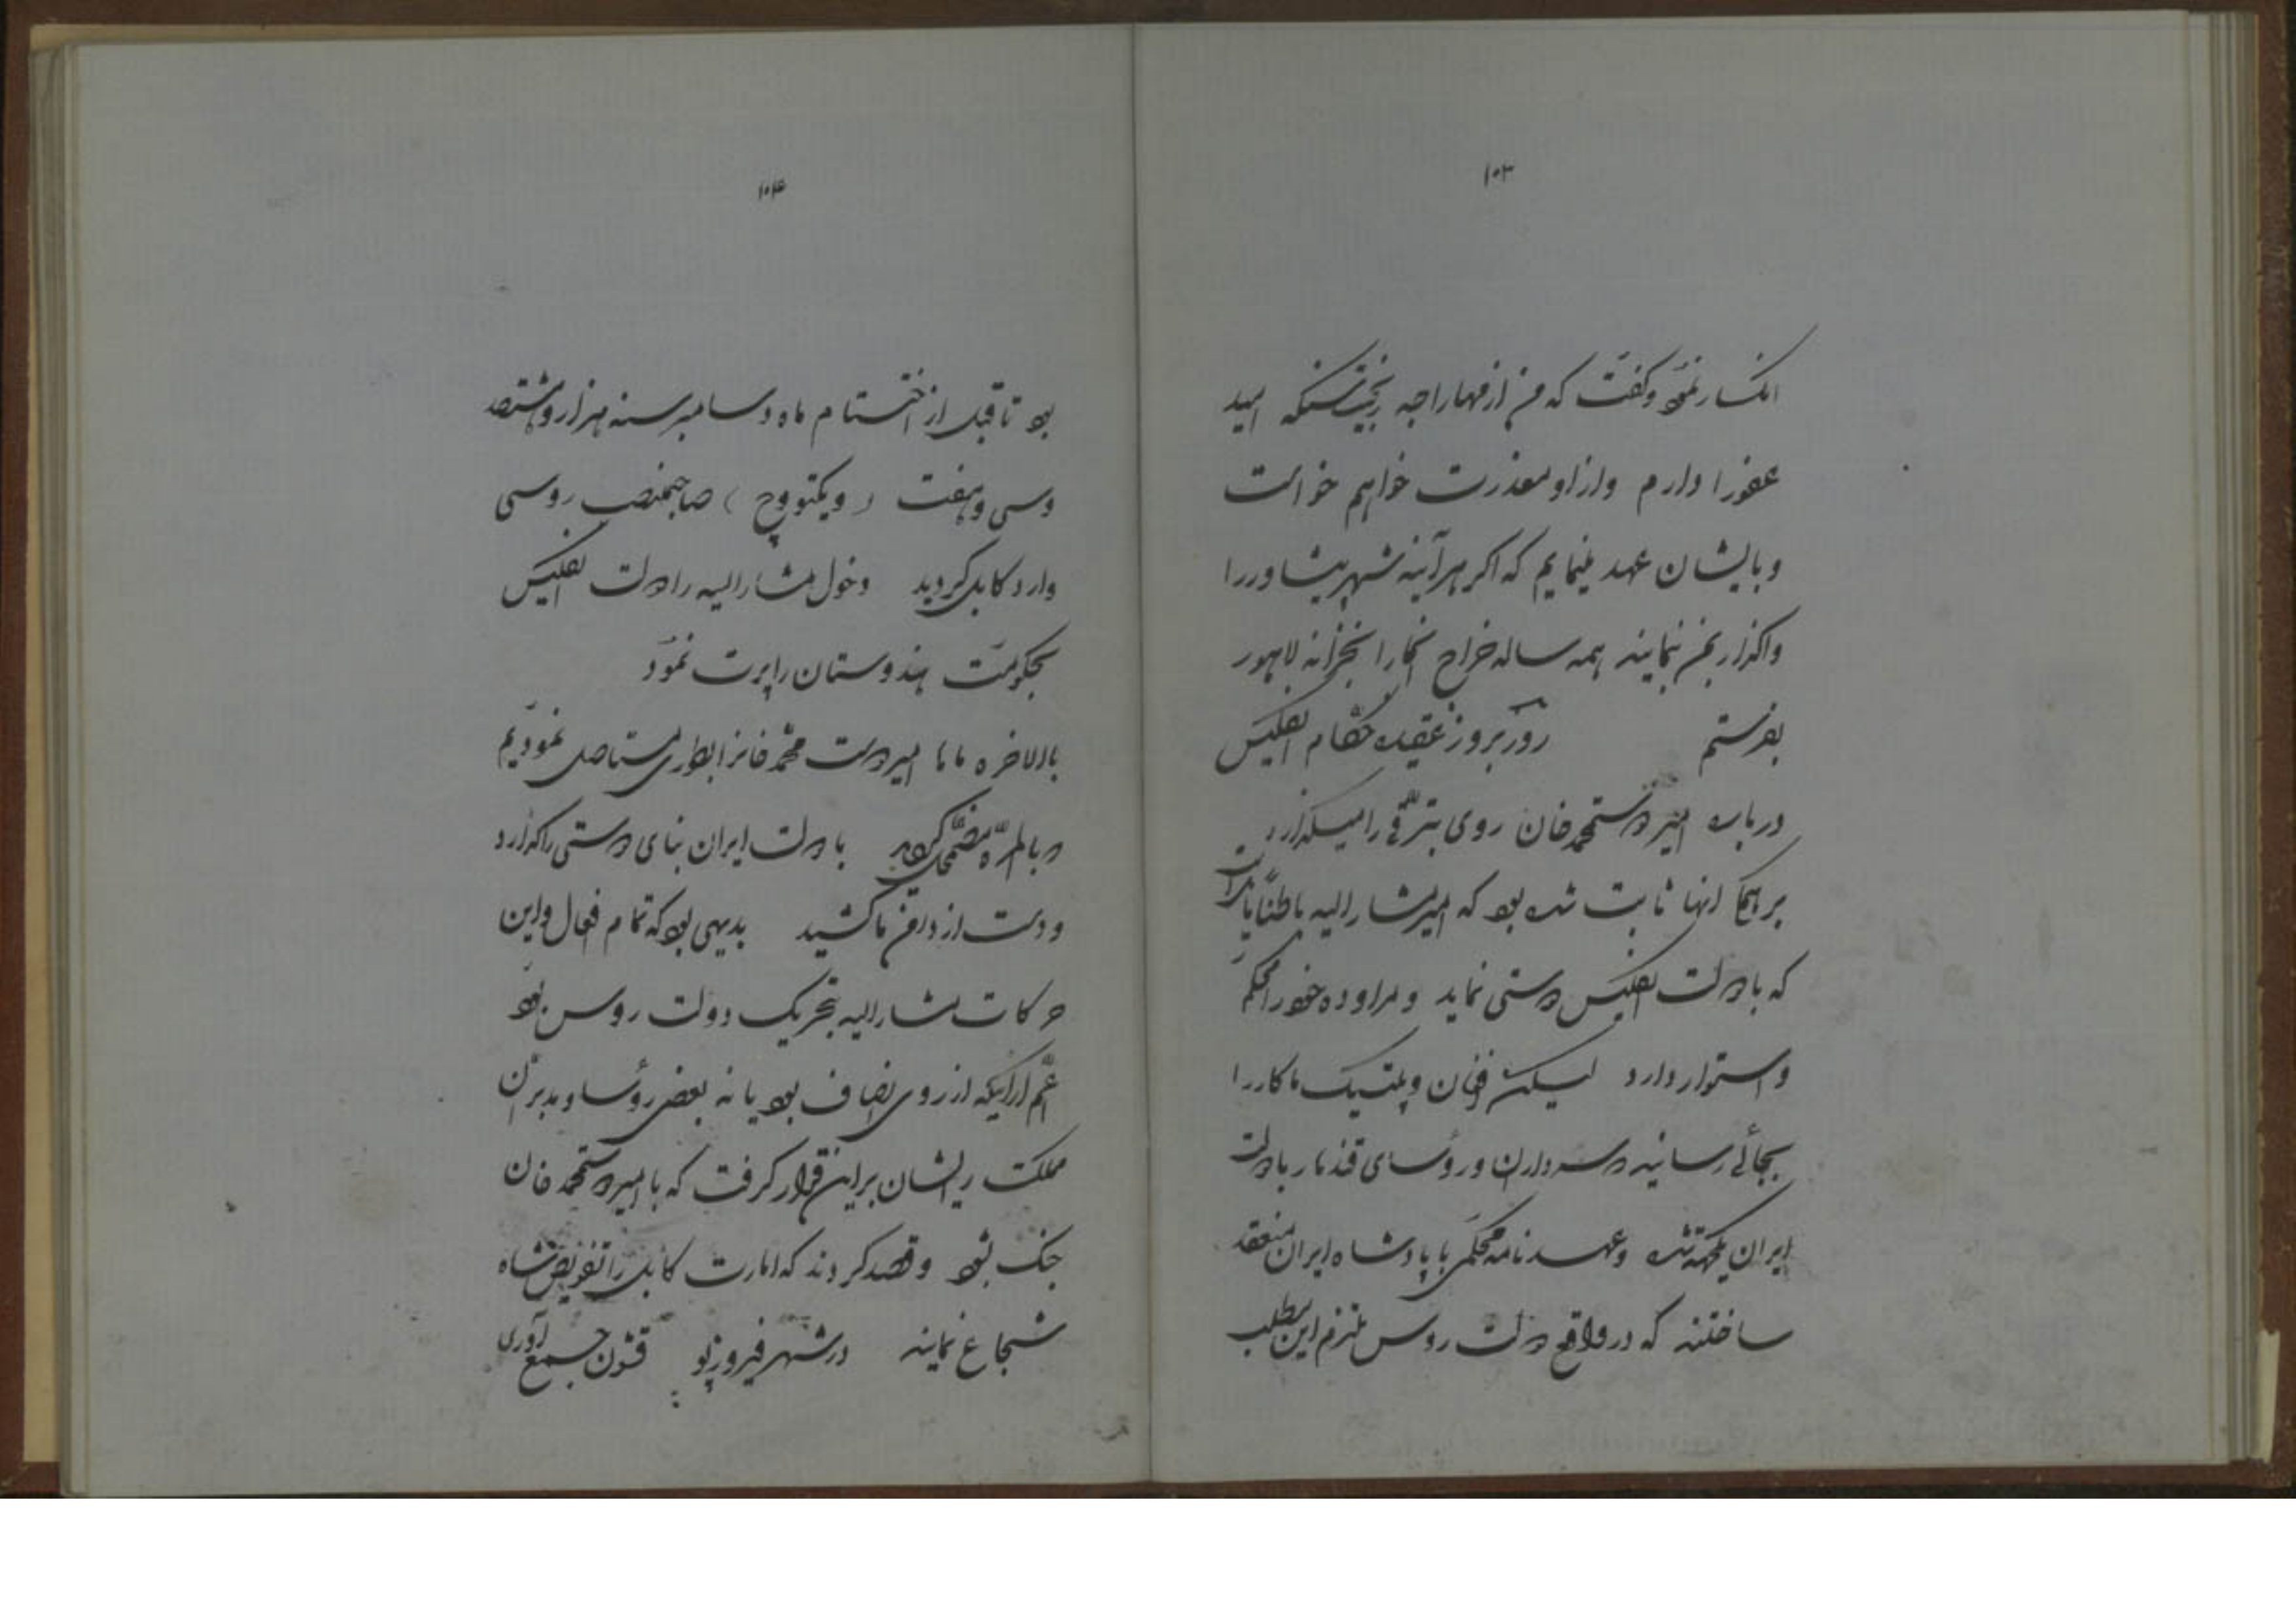 ۱۰۳
انکسار نمود و کفت که من از مهاراجه رنجیت سنکه امید
عفو را دارم و از او معذرت خواهم خواست
و بایشان عهد مینمایم که اکر هر آینه شهر پیشاور را
واکذار بمن نمایند همه ساله خراج آنجا را بخزانه لاهور
بفرستم روز بروز عقیده حکام انکلیس
درباب امیر دوستمحمد خان روی بترقی را میکذارد
بر آنها ثابت شده بود که امیر مشار الیه باطناً
که با دولت انکلیس دوستی نماید و مراوده خود را محکم
و استوار دارد لیکن و پلتیک ما کار را
بجائی رسانید و سرداران و رؤسای قندهار با دولت
ایران یکجهة شده و عهدنامه محکمی با پادشاه ایران منعقد
ساختند که در واقع دولت روس ملتزم این مطلب
۱۰۴
بود تا قبل از اختتام ماه دسامبر سنه هزار و هشتصد
و سی و هفت (ویکتوویچ) صاحبمنصب روسی
وارد کابل کردید دخول مشار الیه را دولت انکلیس
بحکومت هندوستان راپرت نمود
بالاخره ماها امیر دوست محمد خان را بطوری مستاصل نمودیم
و بالمره مضمحل کردید با دولت ایران بنای دوستی را کذارد
و دست از دامن ما کشید بدیهی بود که تمام افعال و این
حرکات مشار الیه بتحریک دولت روس بود
اعم از اینکه از روی انصاف بود یا نه بعضی رؤسا و مدبران
مملکت رایشان بر این قرار کرفت که با امیر دوستمحمد خان
جنک شود و قصد کردند که امارت کابل را تفویض شاه
شجاع نمایند در شهر فیروزپو قشون جمع آوری